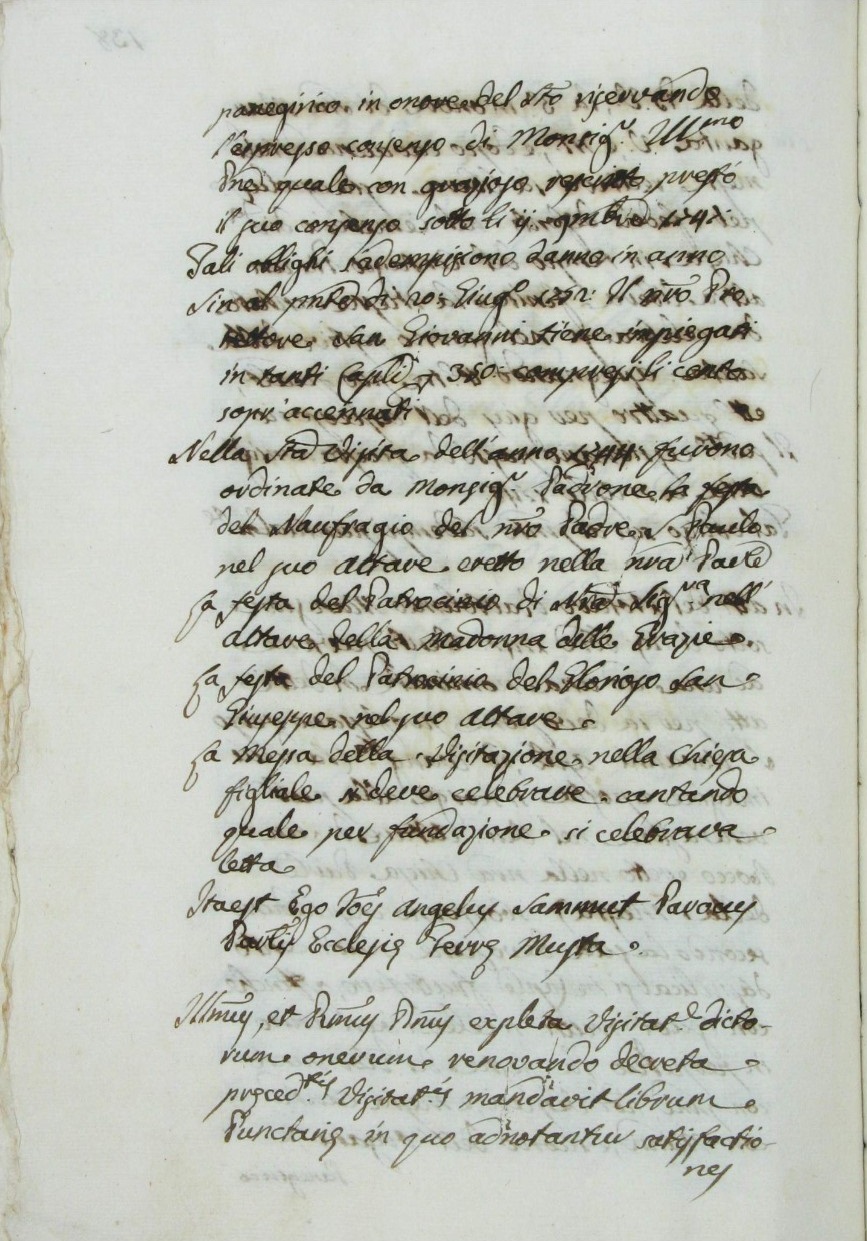 panegirico in onore del Sto riservando
l'espresso consenso di Monsigr. Illmo
Pne quale con grazioso rescritto prestó
il suo consenso sotto li ij 9mbre 1747:
Tali oblighi s'adempiscono d'anno in anno
sin al pnte dì 20: Giugo 1752: Il nro Pro
tettore San Giovanni tiene impiegati
in tanti Caplí 350: compresi li cento
sopr'accennati
Nella Sta Visita dell'anno 1744 furono
ordinate da Monsigr. Padrone la festa
del Naufragio del nro Padre S. Paulo
nel suo altare eretto nella nra Parle
La festa del Patrocinio di Nra Sigra nell'
altare della Madonna delle Grazie.
La festa del Patrocinio del Glorioso San
Giuseppe nel suo altare.
La Messa della Visitazione nella Chiesa
figliale si deve celebrare cantando
quale per fundazione si celebrava
letta
Itaest Ego Joes Angelus Sammut Parocus
Parlis Ecclesię Terrę Musta.
Illmus, et Rmus Dnus expleta Visitat.e dicto-
rum onerum renovando decreta
pręced.tis Visitat.is mandavit librum
Punctarię in quo adnotantur satisfactio-
nes